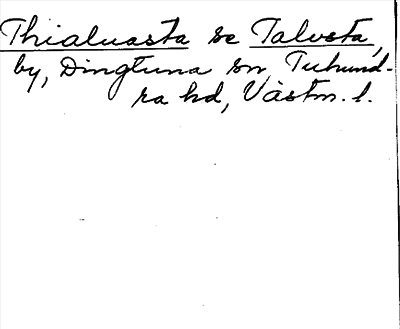 Thialuasta se Talvsta,
by, Dingtuna sn, Tuhund-
ra hd, Västm. l.